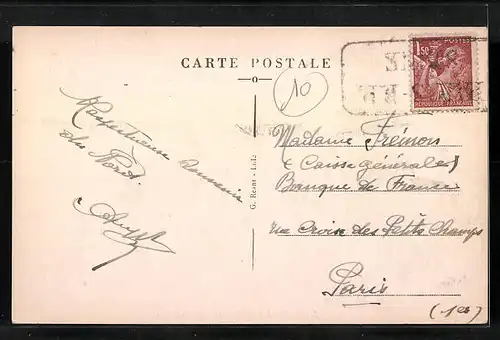 CARTE POSTALE
10
1F50
POSTES
REPUBLIQUE FRANÇAISE
Respectueux souvenir
du Nord.
G. Réant - Lille
Madame Frémon
Caisse générale
Banque de France
rue Croix des Petits Champs
Paris
(1er)